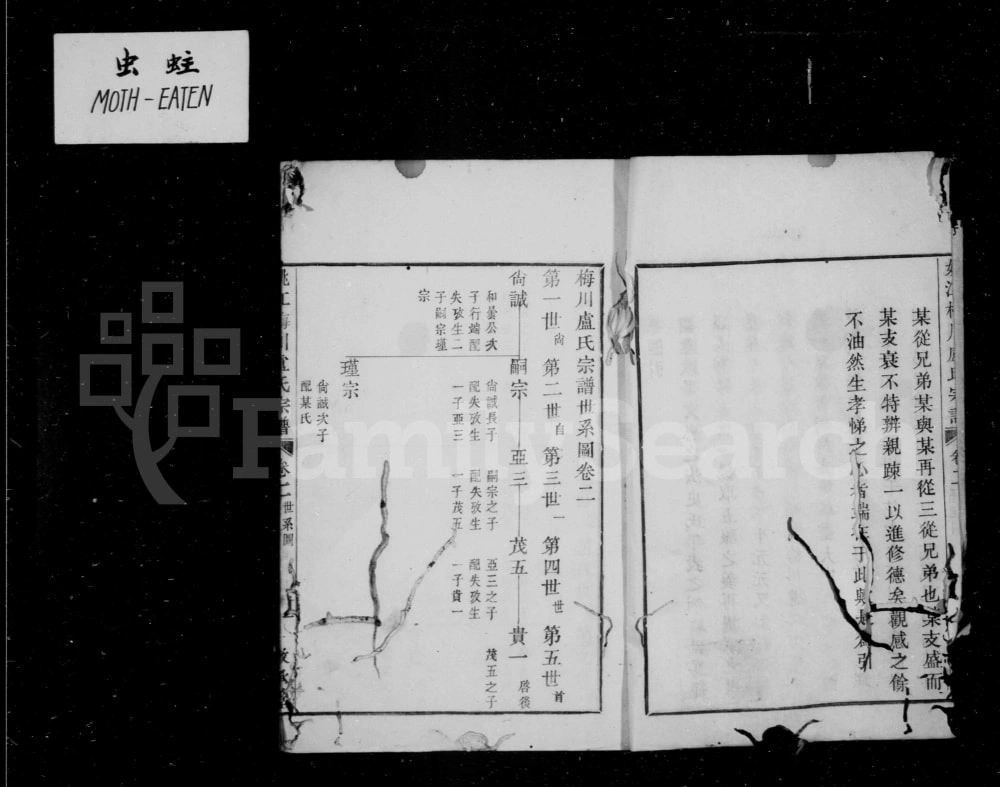 虫蛀
MOTH-EATEN
某從兄弟某與某再從三從兄弟也某支盛而
某支衰不特辨親疎一以進修德矣觀感之餘
不油然生孝悌之
梅川盧氏宗譜世系圖卷二
第一世 尙 第二世 自 第三世 一 第四世 世 第五世 首
尙誠 嗣宗 亞三 茂五 貴一
和曇公次
子行端配
失攷生二
子嗣宗瑾
宗
尙誠長子
配失攷生
一子亞三
嗣宗之子
配失攷生
一子茂五
亞三之子
配失攷生
一子貴一
茂五之子
啓後
瑾宗
尙誠次子
配某氏
盧氏宗譜 卷二 世系圖
FamilySearch